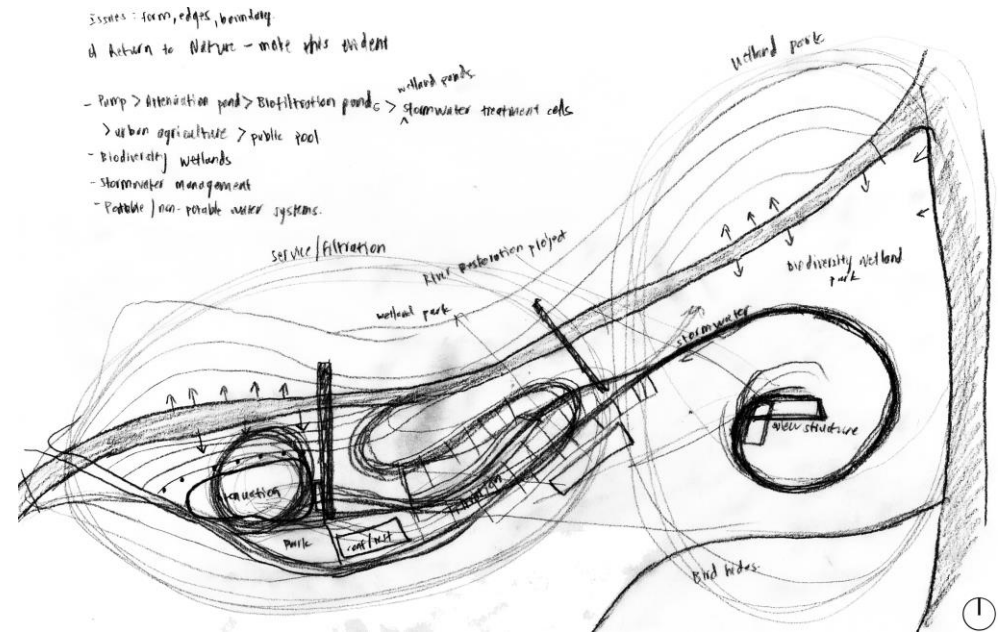 Issues : form, edges, boundary.
Return to Nature - make this evident
wetland ponds
- Pump > Attenuation pond > Biofiltration ponds > stormwater treatment cells
> urban agriculture > public pool
- Biodiversity wetlands
- Stormwater management
- Potable / non-potable water systems.
Wetland park
service/filtration
River Restoration project
wetland park
biodiversity wetland
park
stormwater
view structure
filtration
park
Bird hides